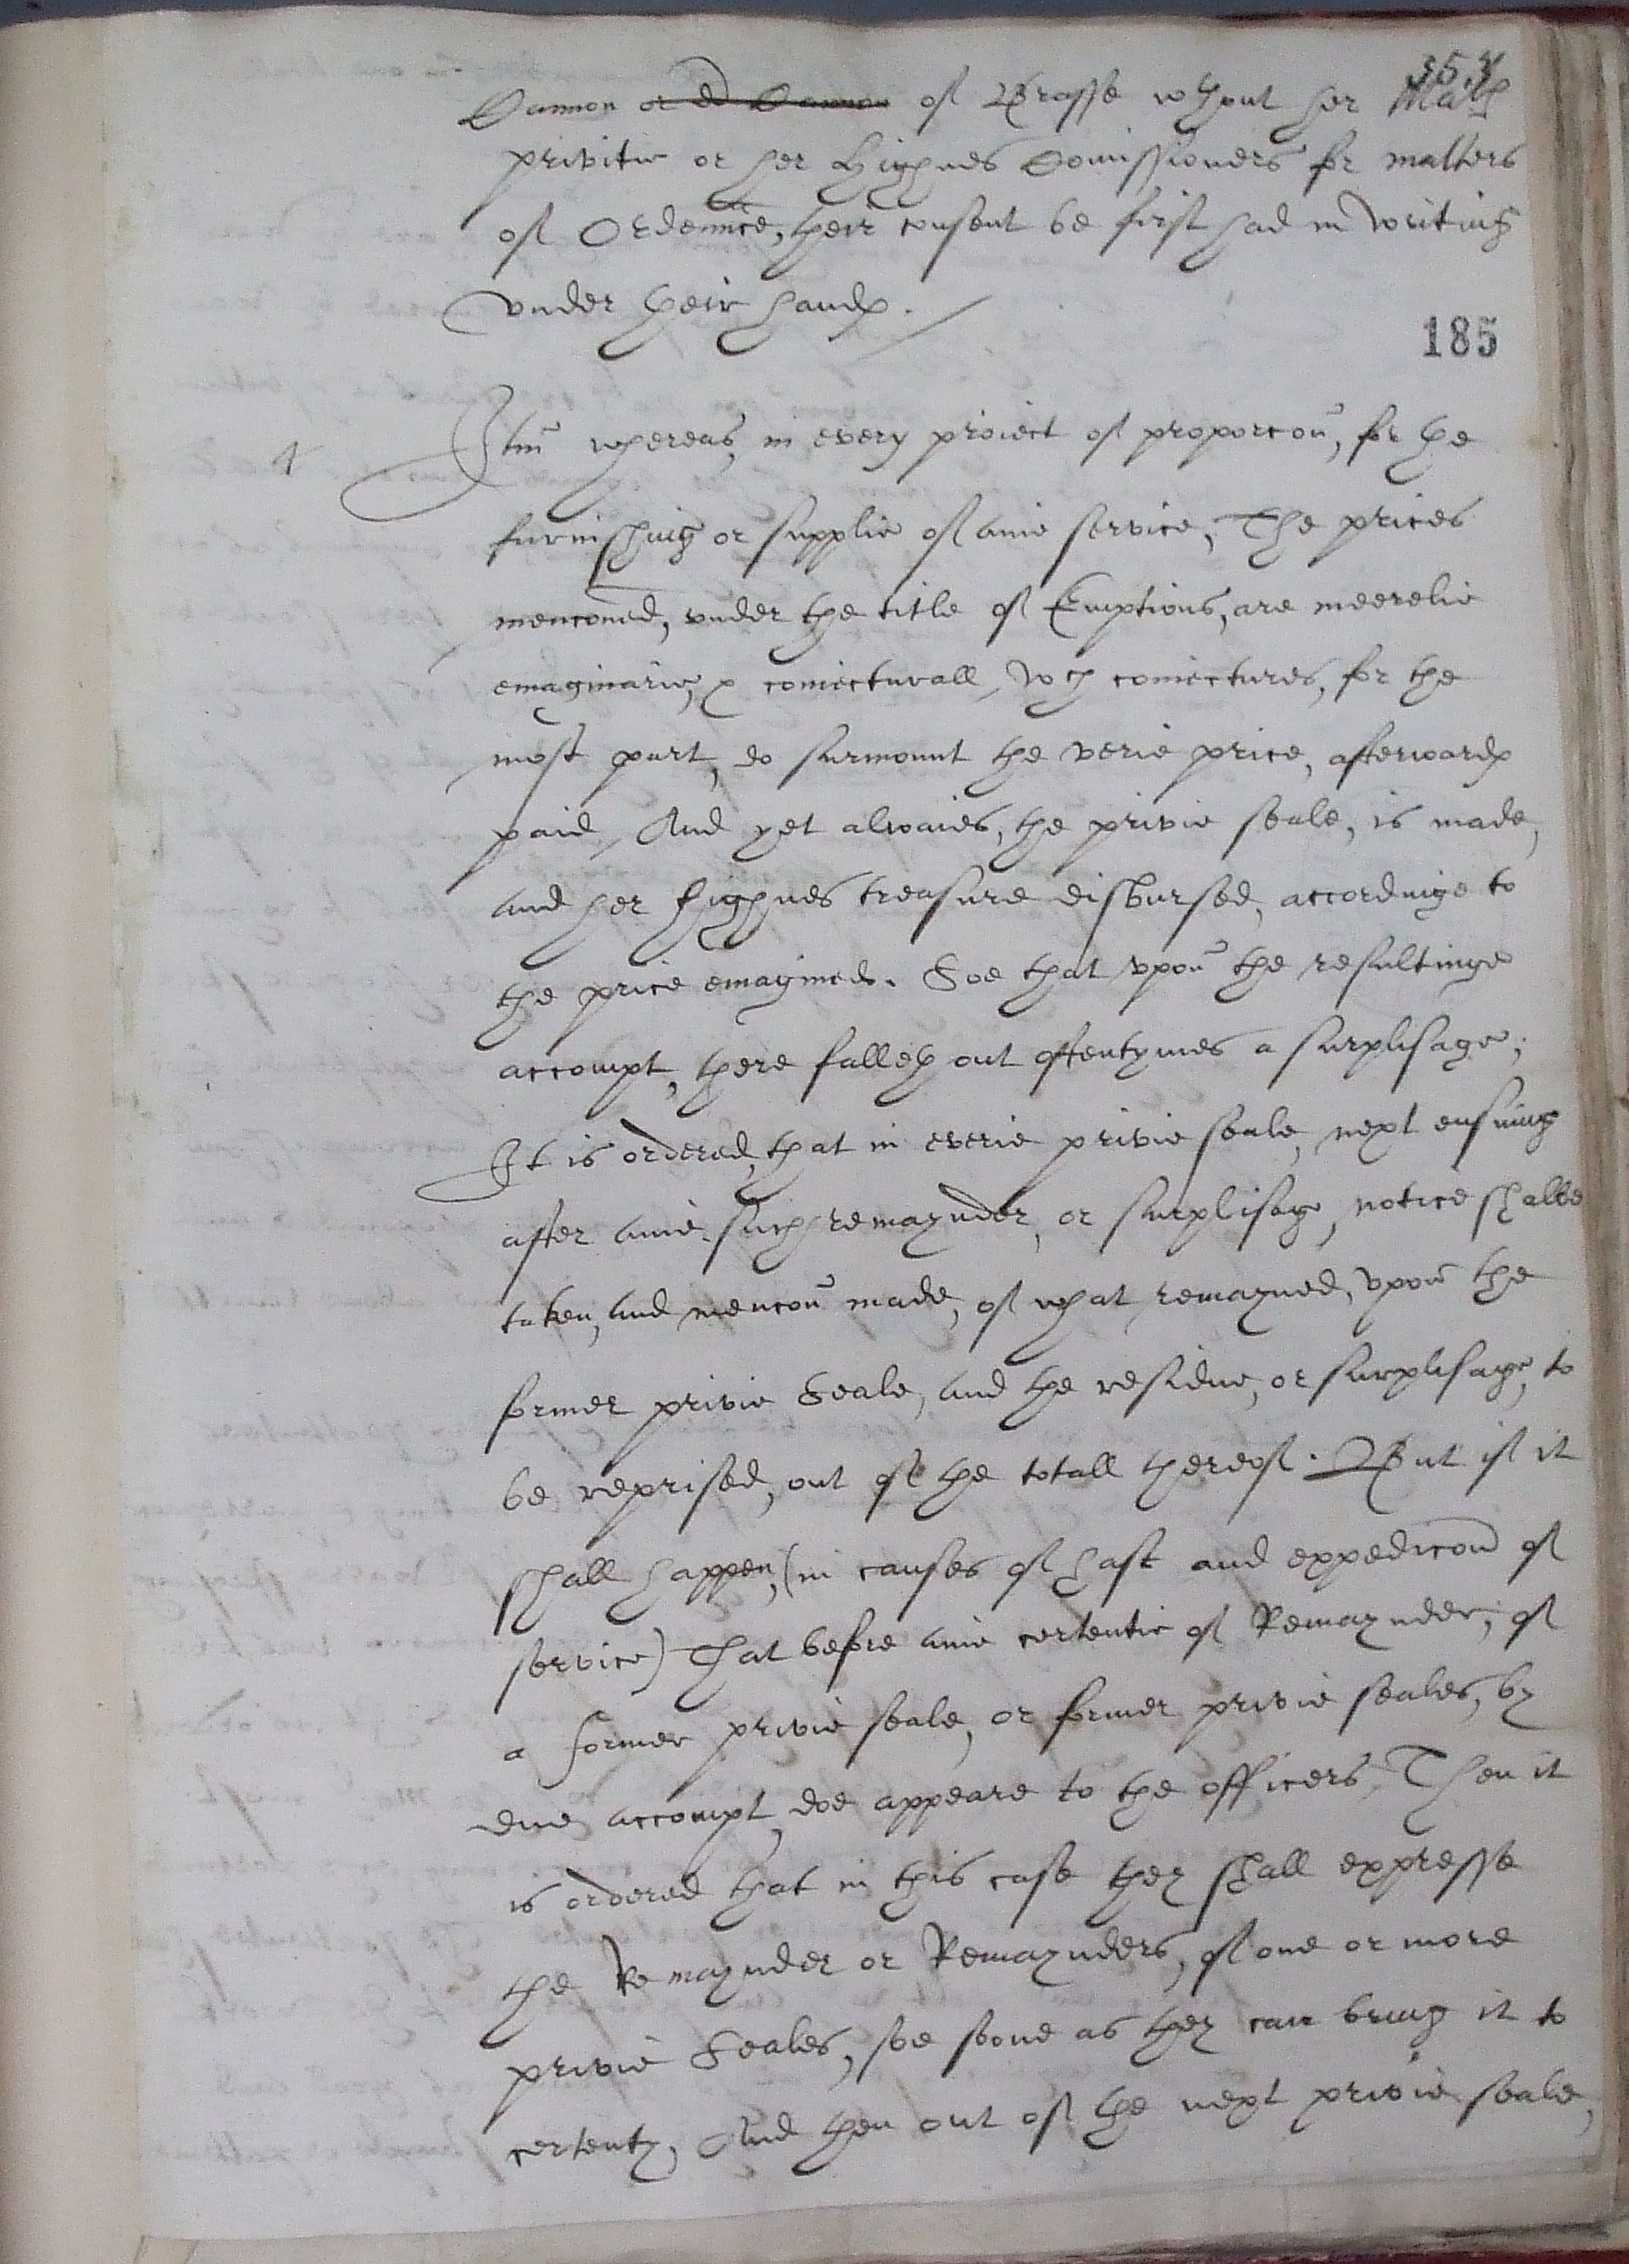 357
Cannon or dd Cannon of Brasse wthout her Matꝭ
privitie or her Highnes Comissioners for matters
of Ordennce, their consent be first had in writing
vnder their handꝭ.
185
Itm̄ whereas, in every proiect of proporcon̄, for the
furnishing or supplie of anie service, The prices
menconed, vnder the title of Emptions, are meerelie
emaginarie, & coniecturall, wch coniectures, for the
most part, do surmount the verie price, afterwardꝭ
paid, And yet alwaies, the privie seale, is made,
and her Highnes treasure disbursed, accordinge to
the price emagined. Soe that vpon̄ the resultinge
accompt, there falleth out oftentymes a surplisage;
It is ordered, that in everie privie seale, next ensuing
after anie such remaynder, or surplisage, notice shalbe
taken, and mencon̄ made, of what remayned, vpon̄ the
former privie Seale, and the residue, or surplisage, to
be reprised, out of the totall thereof. But if it
shall happen, (in causes of hast and expedicon̄ of
service) That before anie certentie of Remaynder, of
a former privie seale, or former privie seales, by
due accompt, doe appeare to the officers, Then it
is ordered that in this case they shall expresse
the Remaynder or Remaynders, of one or more
privie Seales, soe soone as they can bring it to
certenty, And then out of the next privie seale,